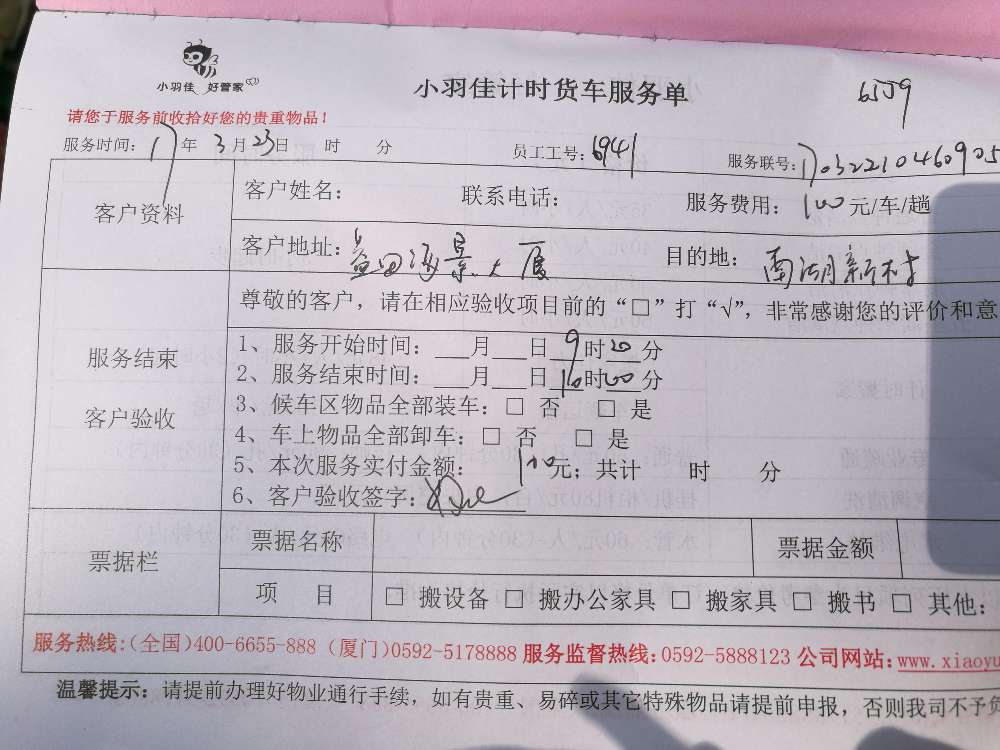 小羽佳 好管家
小羽佳计时货车服务单
6559
请您于服务前收拾好您的贵重物品!
服务时间: 17年 3月23日 时 分 员工工号: 6941 服务联号: 17032210460905
客户资料
客户姓名: 联系电话: 服务费用: 100元/车/趟
客户地址: 益田海景大厦 目的地: 南湖新村
尊敬的客户，请在相应验收项目前的“□”打“√”，非常感谢您的评价和意
服务结束
客户验收
1、服务开始时间: ___月___日 9时20分
2、服务结束时间: ___月___日 10时00分
3、候车区物品全部装车: □ 否 □ 是
4、车上物品全部卸车: □ 否 □ 是
5、本次服务实付金额: 元; 共计 时 分
6、客户验收签字:
票据栏
票据名称 票据金额
项 目 □ 搬设备 □ 搬办公家具 □ 搬家具 □ 搬书 □ 其他:
服务热线:(全国)400-6655-888 (厦门)0592-5178888 服务监督热线:0592-5888123 公司网站:www.xiaoyu
温馨提示: 请提前办理好物业通行手续，如有贵重、易碎或其它特殊物品请提前申报，否则我司不予负